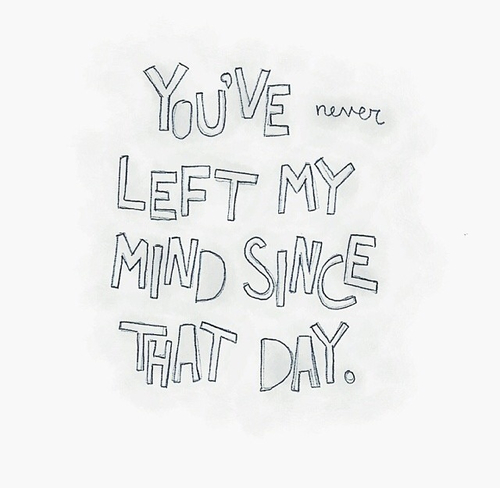 YOU'VE never
LEFT MY
MIND SINCE
THAT DAY.